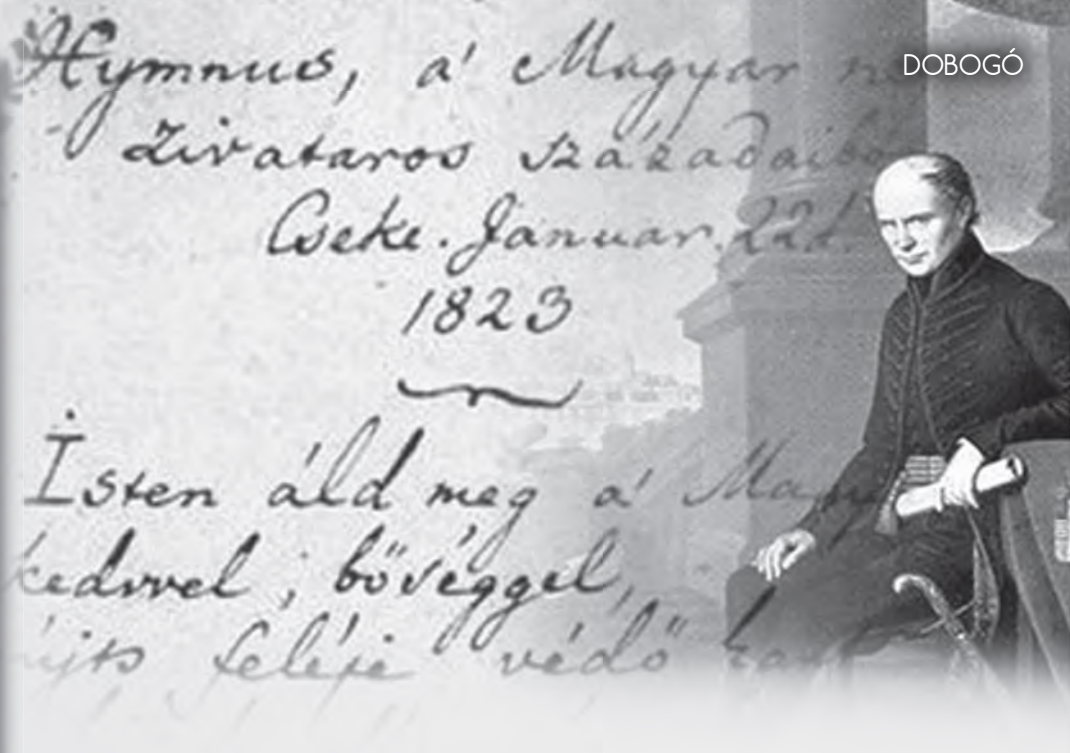 DOBOGÓ
Hymnus, a' Magyar n
Zivataros századaibó
Cseke. Januar. 22d.
1823
Isten áld meg a' Magy
kedvvel, bőséggel,
újts feléje védő kar